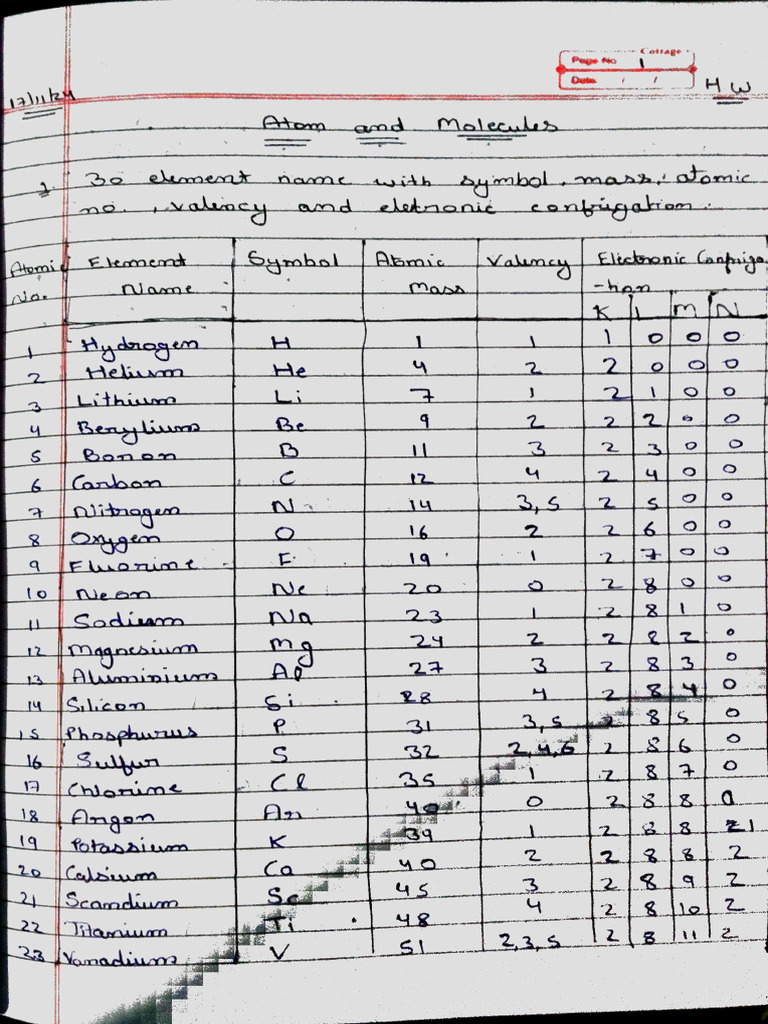 Cottage
Page No 1
Date / /
17/11/24
H W
Atom and Molecules
1. 30 element name with symbol, mass, atomic
no., valency and eletronic confrigation.
Atomic No. Element Name Symbol Atomic Mass Valency Electronic Confriga-tion
K L M N
1 Hydrogen H 1 1 1 0 0 0
2 Helium He 4 2 2 0 0 0
3 Lithium Li 7 1 2 1 0 0
4 Berylium Be 9 2 2 2 0 0
5 Boron B 11 3 2 3 0 0
6 Carbon C 12 4 2 4 0 0
7 Nitrogen N 14 3,5 2 5 0 0
8 Oxygen O 16 2 2 6 0 0
9 Fluorine F 19 1 2 7 0 0
10 Neon Ne 20 0 2 8 0 0
11 Sodium Na 23 1 2 8 1 0
12 Magnesium Mg 24 2 2 8 2 0
13 Aluminium Al 27 3 2 8 3 0
14 Silicon Si 28 4 2 8 4 0
15 Phosphurus P 31 3,5 2 8 5 0
16 Sulfur S 32 2,4,6 2 8 6 0
17 Chlorine Cl 35 1 2 8 7 0
18 Argon Ar 40 0 2 8 8 0
19 Potassium K 39 1 2 8 8 1
20 Calsium Ca 40 2 2 8 8 2
21 Scandium Sc 45 3 2 8 9 2
22 Titanium Ti 48 4 2 8 10 2
23 Vanadium V 51 2,3,5 2 8 11 2